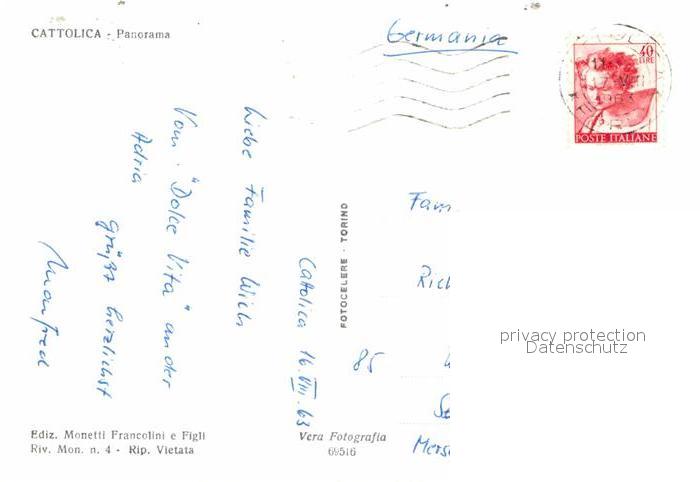 CATTOLICA - Panorama
Germania
40
LIRE
1963
POSTE ITALIANE
Cattolica 16.VIII.63
Liebe Familie
Vom "Dolce Vita" an der
Adria
grüßt herzlichst
Manfred
FOTOCELERE - TORINO
Fam
Rich
85
Mers
privacy protection
Datenschutz
Ediz. Monetti Francolini e Figli
Riv. Mon. n. 4 - Rip. Vietata
Vera Fotografia
69516